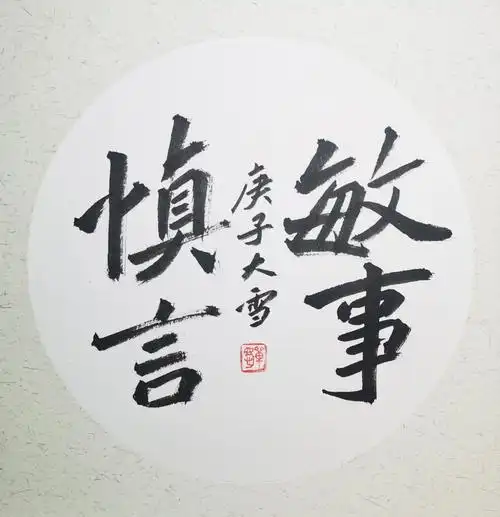 敏事
慎言
庚子大雪